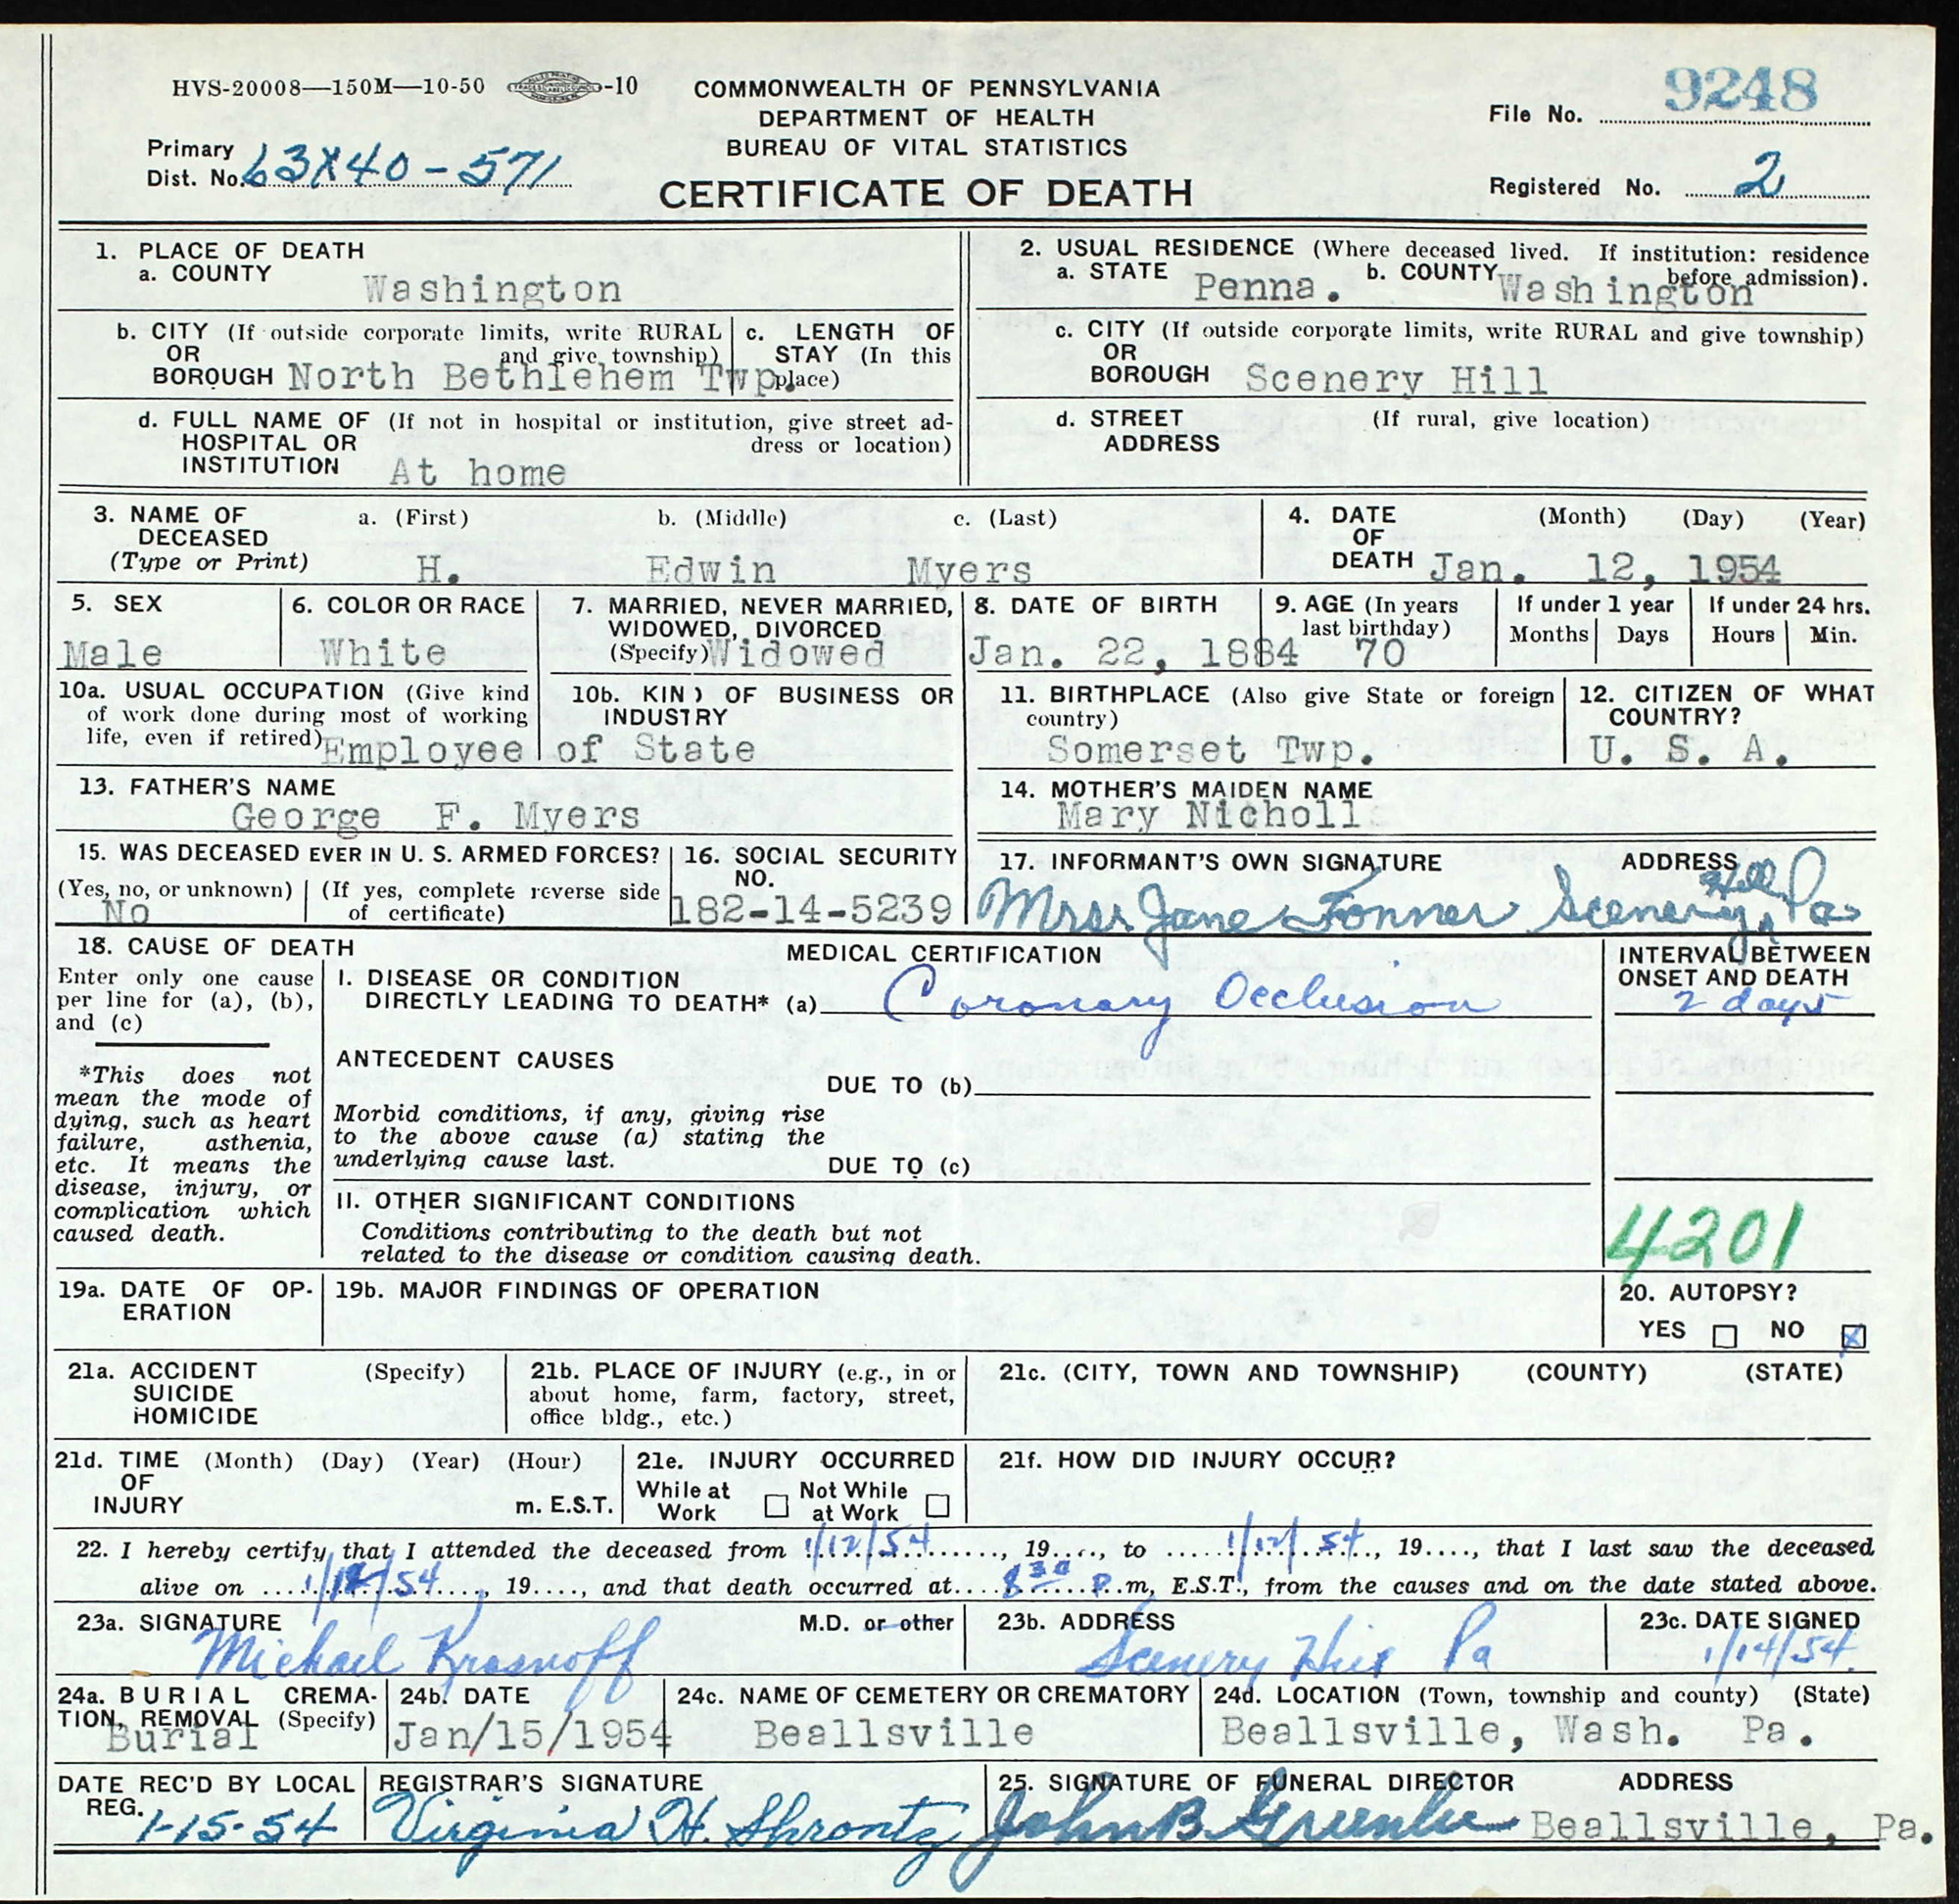 HVS-20008—150M—10-50 -10
COMMONWEALTH OF PENNSYLVANIA
DEPARTMENT OF HEALTH
BUREAU OF VITAL STATISTICS
CERTIFICATE OF DEATH
File No. 9248
Primary
Dist. No. 63X40-571
Registered No. 2
1. PLACE OF DEATH
a. COUNTY
Washington
2. USUAL RESIDENCE (Where deceased lived. If institution: residence
before admission).
a. STATE Penna. b. COUNTY Washington
b. CITY (If outside corporate limits, write RURAL
OR and give township)
BOROUGH North Bethlehem Twp.
c. LENGTH OF
STAY (In this
place)
c. CITY (If outside corporate limits, write RURAL and give township)
OR
BOROUGH Scenery Hill
d. FULL NAME OF (If not in hospital or institution, give street ad-
HOSPITAL OR dress or location)
INSTITUTION At home
d. STREET (If rural, give location)
ADDRESS
3. NAME OF a. (First) b. (Middle) c. (Last)
DECEASED
(Type or Print) H. Edwin Myers
4. DATE (Month) (Day) (Year)
OF
DEATH Jan. 12, 1954
5. SEX
Male
6. COLOR OR RACE
White
7. MARRIED, NEVER MARRIED,
WIDOWED, DIVORCED
(Specify) Widowed
8. DATE OF BIRTH
Jan. 22, 1884
9. AGE (In years
last birthday)
70
If under 1 year
Months Days
If under 24 hrs.
Hours Min.
10a. USUAL OCCUPATION (Give kind
of work done during most of working
life, even if retired)
10b. KIND OF BUSINESS OR
INDUSTRY
Employee of State
11. BIRTHPLACE (Also give State or foreign
country)
Somerset Twp.
12. CITIZEN OF WHAT
COUNTRY?
U. S. A.
13. FATHER'S NAME
George F. Myers
14. MOTHER'S MAIDEN NAME
Mary Nicholl
15. WAS DECEASED EVER IN U. S. ARMED FORCES?
(Yes, no, or unknown) (If yes, complete reverse side
No of certificate)
16. SOCIAL SECURITY
NO.
182-14-5239
17. INFORMANT'S OWN SIGNATURE ADDRESS
Mrs. Jane Fonner Scenery Hill, Pa
18. CAUSE OF DEATH
Enter only one cause
per line for (a), (b),
and (c)
*This does not
mean the mode of
dying, such as heart
failure, asthenia,
etc. It means the
disease, injury, or
complication which
caused death.
MEDICAL CERTIFICATION
I. DISEASE OR CONDITION
DIRECTLY LEADING TO DEATH* (a) Coronary Occlusion
INTERVAL BETWEEN
ONSET AND DEATH
2 days
ANTECEDENT CAUSES
DUE TO (b)
Morbid conditions, if any, giving rise
to the above cause (a) stating the
underlying cause last.
DUE TO (c)
II. OTHER SIGNIFICANT CONDITIONS
Conditions contributing to the death but not
related to the disease or condition causing death.
4201
19a. DATE OF OP-
ERATION
19b. MAJOR FINDINGS OF OPERATION
20. AUTOPSY?
YES NO X
21a. ACCIDENT (Specify)
SUICIDE
HOMICIDE
21b. PLACE OF INJURY (e.g., in or
about home, farm, factory, street,
office bldg., etc.)
21c. (CITY, TOWN AND TOWNSHIP) (COUNTY) (STATE)
21d. TIME (Month) (Day) (Year) (Hour)
OF
INJURY m. E.S.T.
21e. INJURY OCCURRED
While at Not While
Work at Work
21f. HOW DID INJURY OCCUR?
22. I hereby certify that I attended the deceased from 1/12/54, 19...., to 1/12/54, 19...., that I last saw the deceased
alive on 1/12/54, 19...., and that death occurred at 8 30 P.m, E.S.T., from the causes and on the date stated above.
23a. SIGNATURE M.D. or other
Michael Krasnoff
23b. ADDRESS
Scenery Hill Pa
23c. DATE SIGNED
1/14/54
24a. BURIAL CREMA-
TION, REMOVAL (Specify)
Burial
24b. DATE
Jan/15/1954
24c. NAME OF CEMETERY OR CREMATORY
Beallsville
24d. LOCATION (Town, township and county) (State)
Beallsville, Wash. Pa.
DATE REC'D BY LOCAL
REG.
1-15-54
REGISTRAR'S SIGNATURE
Virginia H. Shrontz
25. SIGNATURE OF FUNERAL DIRECTOR ADDRESS
John B Greenlee Beallsville, Pa.